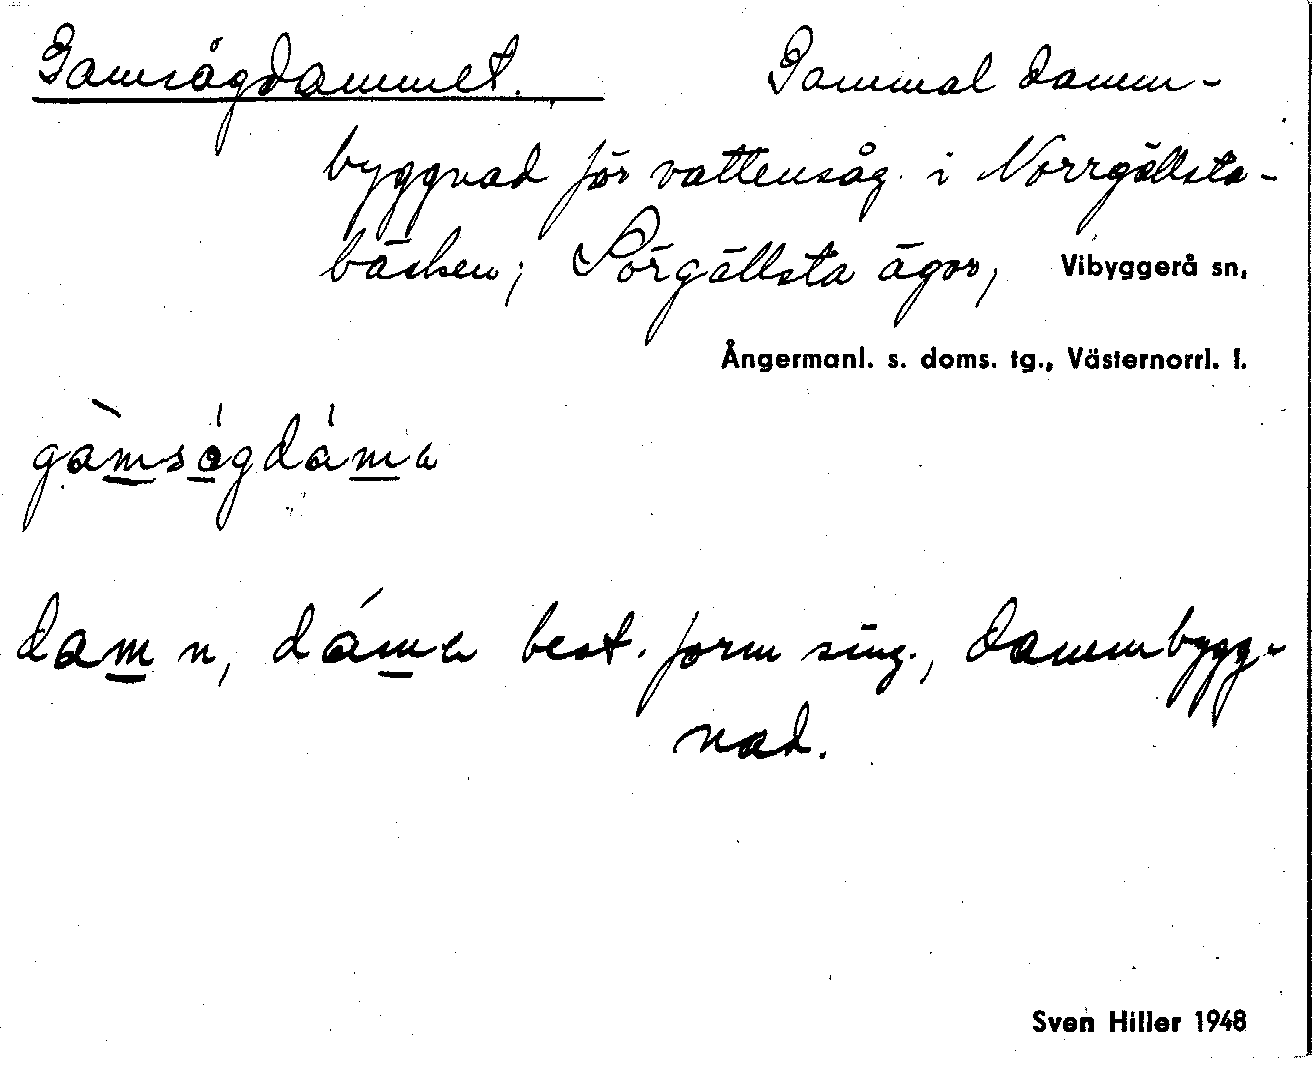 Gamsågdammet. Gammal damm-
byggnad för vattensåg i Norrgällsta-
bäcken; Sörgällsta ägor, Vibyggerå sn,
Ångermanl. s. doms. tg., Västernorrl. l.
gàmságdáma
dam n, dáma best. form sing., dammbygg-
nad.
Sven Hiller 1948